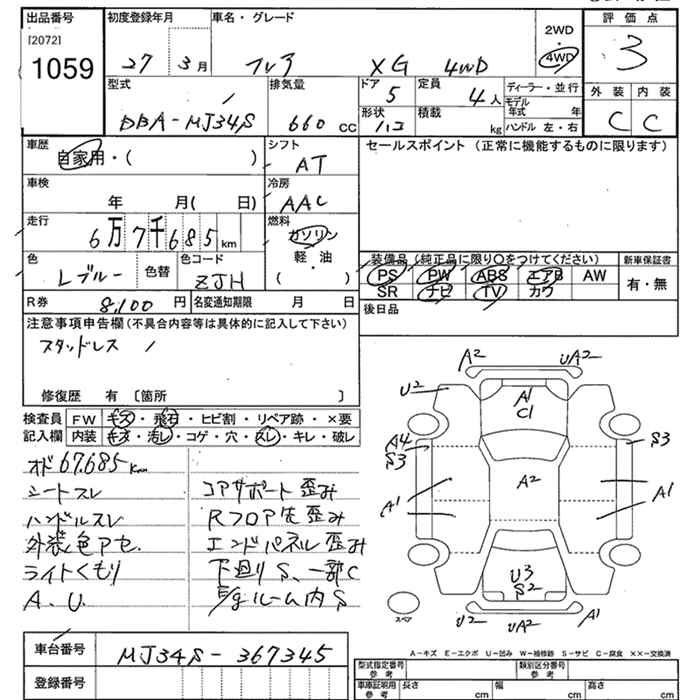 出品番号 初度登録年月 車名・グレード 2WD 評価点
[2072] 1059 27 3月 フレア XG 4WD 4WD 3
型式 排気量 ドア 5 定員 4人 ディーラー・並行 外装 内装
DBA-MJ34S 660cc 形状 ハコ 積載 kg モデル年式 年 C C
ハンドル 左・右
車歴 自家用・( ) シフト AT セールスポイント (正常に機能するものに限ります)
車検 年 月( 日) 冷房 AAC
走行 6万7千685km 燃料 ガソリン 軽油 ・ ( )
色 Lブルー 色替 色コード ZJH 装備品(純正品に限り○をつけてください) 新車保証書
PS PW ABS エアB AW 有・無
SR ナビ TV カワ
R券 8,100円 名変通知期限 月 日 後日品
注意事項申告欄(不具合内容等は具体的に記入して下さい)
スタッドレス
修復歴 有 〔箇所 〕
検査員 FW キズ・飛石・ヒビ割・リペア跡・×要
記入欄 内装 キズ・汚レ・コゲ・穴・スレ・キレ・破レ
オド67,685Km
シートスレ コアサポート歪み
ハンドルスレ Rフロア先歪み
外装色アセ. エンドパネル歪み
ライトくもり 下廻りS、一部C
A.U. ルーム内S
A2 UA2
U2 A1 C1
A4 S3 S3
A1 A2 A1
U3 S2
スペア U2 UA2 A1
A-キズ E-エクボ U-凹み W-補修跡 S-サビ C-腐食 ××-交換済
車台番号 MJ34S-367345
登録番号
型式指定番号 参考 類別区分番号 参考
車庫証明用 参考 長さ cm 幅 cm 高さ cm